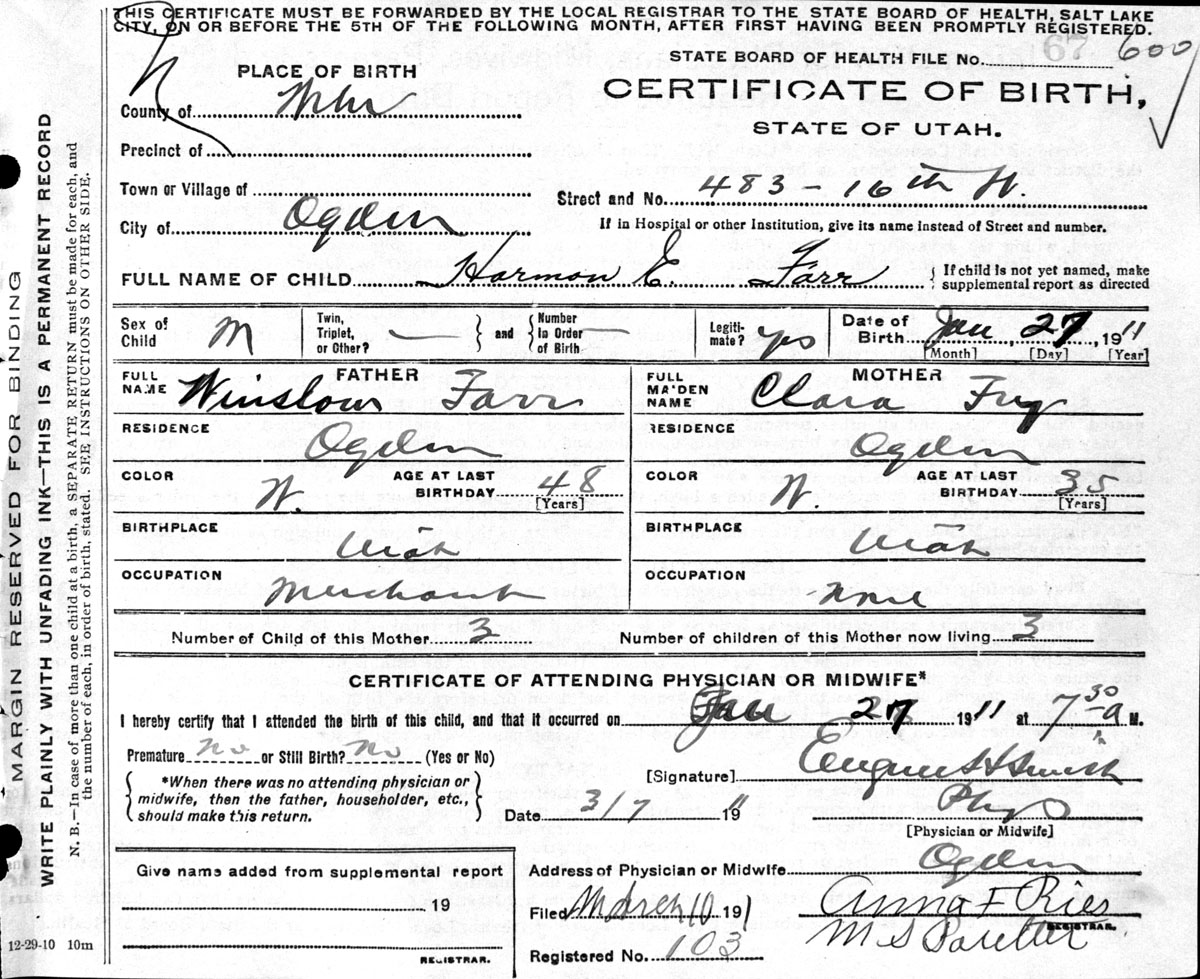 THIS CERTIFICATE MUST BE FORWARDED BY THE LOCAL REGISTRAR TO THE STATE BOARD OF HEALTH, SALT LAKE
CITY, ON OR BEFORE THE 5TH OF THE FOLLOWING MONTH, AFTER FIRST HAVING BEEN PROMPTLY REGISTERED.
STATE BOARD OF HEALTH FILE No. 67 600
PLACE OF BIRTH
CERTIFICATE OF BIRTH,
STATE OF UTAH.
County of
Precinct of
Town or Village of
Street and No. 483 - 16th St.
City of Ogden
If in Hospital or other Institution, give its name instead of Street and number.
FULL NAME OF CHILD Harmon E. Farr { If child is not yet named, make supplemental report as directed
Sex of Child M Twin, Triplet, or Other? — and Number in Order of Birth — Legitimate? yes Date of Birth Jan, 27, 1911
[Month] [Day] [Year]
FATHER MOTHER
FULL NAME Winslow Farr FULL MAIDEN NAME Clara
RESIDENCE Ogden RESIDENCE Ogden
COLOR W. AGE AT LAST BIRTHDAY 48 [Years] COLOR W. AGE AT LAST BIRTHDAY 35 [Years]
BIRTHPLACE Utah BIRTHPLACE Utah
OCCUPATION Merchant OCCUPATION None
Number of Child of this Mother 3 Number of children of this Mother now living 3
CERTIFICATE OF ATTENDING PHYSICIAN OR MIDWIFE*
I hereby certify that I attended the birth of this child, and that it occurred on Jan 27 1911 at 7 30 a M.
Premature no or Still Birth? no (Yes or No)
[Signature] Smith
*When there was no attending physician or midwife, then the father, householder, etc., should make this return.
Date 3/7 1911 Phys
[Physician or Midwife]
Give name added from supplemental report
Address of Physician or Midwife Ogden
19
Filed March 10 1911 Anna F Ries
REGISTRAR.
Registered No. 103 M S
REGISTRAR.
12-29-10 10m
MARGIN RESERVED FOR BINDING
WRITE PLAINLY WITH UNFADING INK—THIS IS A PERMANENT RECORD
N. B.—In case of more than one child at a birth, a SEPARATE RETURN must be made for each, and
the number of each, in order of birth, stated. SEE INSTRUCTIONS ON OTHER SIDE.